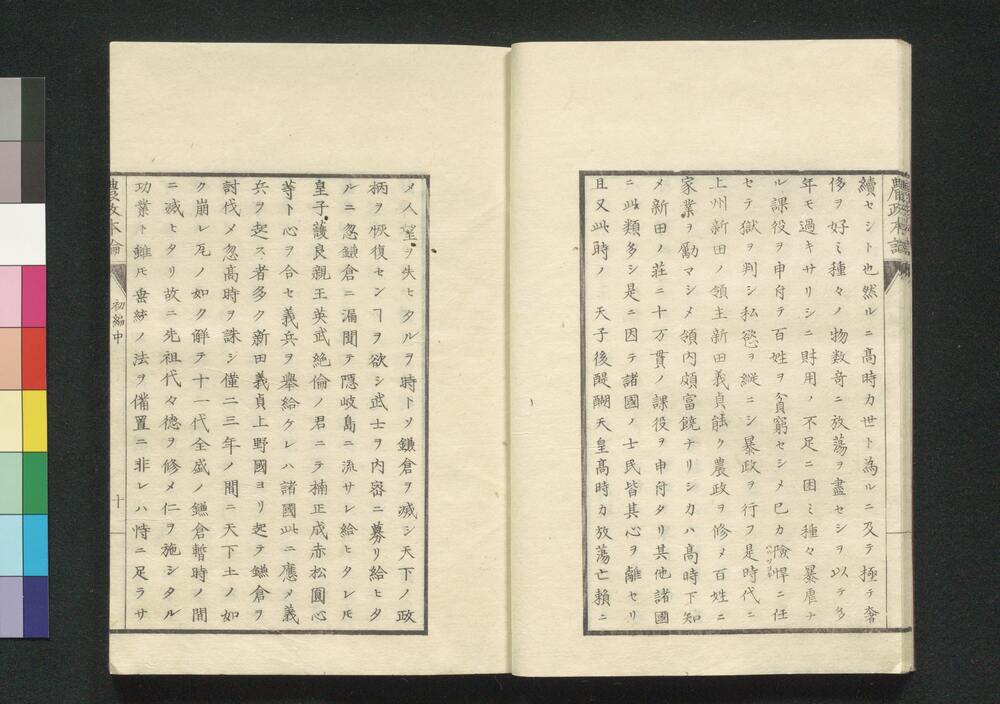 農政本論
續セシト也然ルニ高時カ世ト為ルニ及テ極テ奢
侈ヲ好ミ種々ノ物数奇ニ放蕩ヲ盡セシヲ以テ多
年モ過キサリシニ財用ノ不足ニ困ミ種々暴虐ナ
ル課役ヲ申付テ百姓ヲ貧窮セシメ已カ險悍ニ任
セテ獄ヲ判シ私慾ヲ縱ニシ暴政ヲ行フ是時代ニ
上州新田ノ領主新田義貞能ク農政ヲ修メ百姓ニ
家業ヲ勵マシメ領内頗富饒ナリシカハ高時下知
メ新田ノ莊ニ十万貫ノ課役ヲ申付タリ其他諸國
ニ此類多シ是ニ因テ諸國ノ士民皆其心ヲ離セリ
且又此時ノ 天子後醍醐天皇高時カ放蕩亡賴ニ
メ人望ヲ失ヒタルヲ時トソ鎌倉ヲ滅シ天下ノ政
柄ヲ恢復センヿヲ欲シ武士ヲ内密ニ募リ給ヒタ
ルニ忽鎌倉ニ漏聞テ隠岐島ニ流サレ給ヒタレモ
皇子護良親王英武絶倫ノ君ニテ楠正成赤松圓心
等ト心ヲ合セ義兵ヲ舉給ケレハ諸國此ニ應メ義
兵ヲ起ス者多ク新田義貞上野國ヨリ起テ鎌倉ヲ
討伐メ忽高時ヲ誅シ僅二三年ノ間ニ天下土ノ如
ク崩レ瓦ノ如ク解テ十一代全盛ノ鎌倉暫時ノ間
ニ滅ヒタリ故ニ先祖代々德ヲ修メ仁ヲ施シタル
功業ト雖モ垂統ノ法ヲ備置ニ非レハ恃ニ足ラサ
農政本論
初編中
十